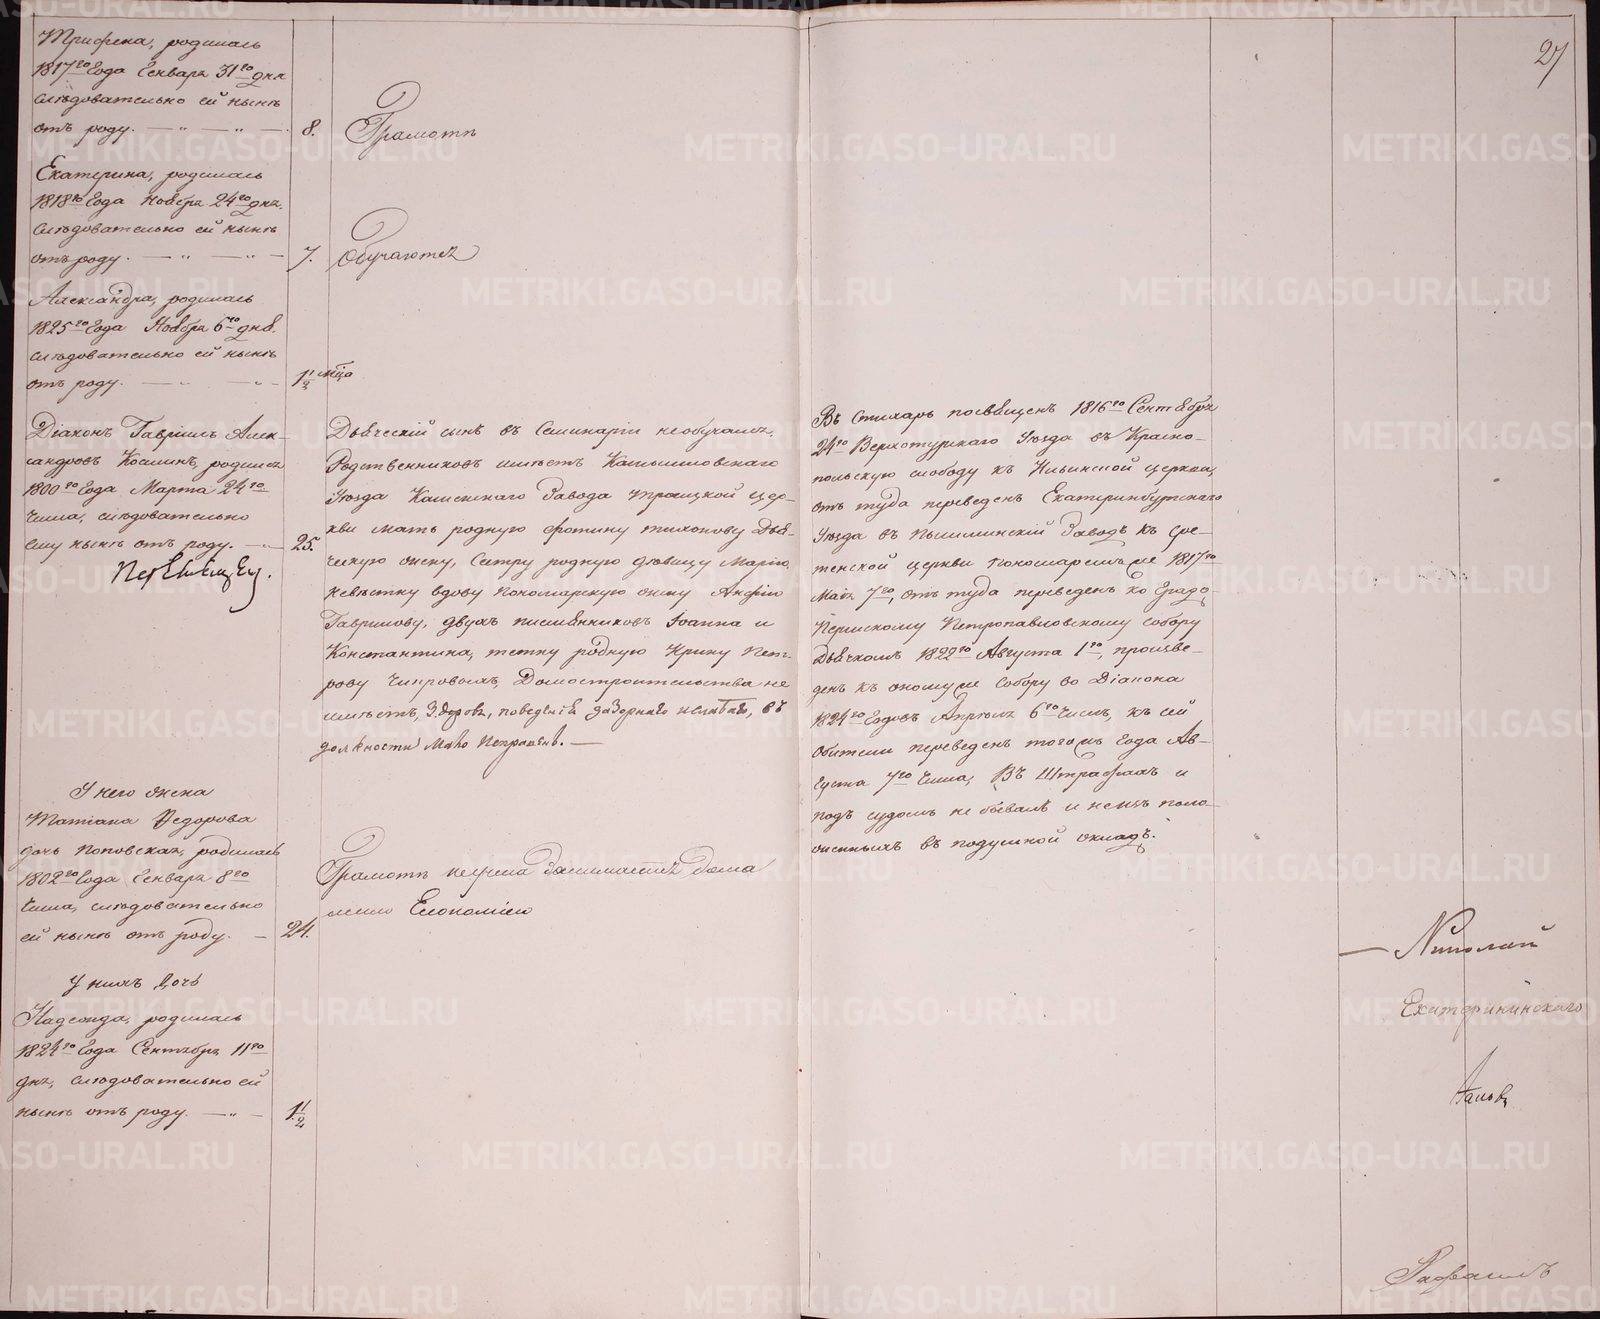 27
Трифена, родилась
1817го Года Генваря 31го дня
слѣдовательно ей нынѣ
отъ роду. — „ — „ — 8.
Грамотѣ
Екатерина, родилась
1818го Года Ноября 24го дня.
слѣдовательно ей нынѣ
отъ роду. — „ — „ — 7.
Обучаются
Александра, родилась
1825го Года Ноября 6го дня.
слѣдовательно ей нынѣ
отъ роду. — „ — „ — 1 1/2 мѣца
Діаконъ Гавріилъ Алек-
сандровъ родился
1800го Года Марта 24го
Числа, слѣдовательно
ему нынѣ отъ роду. — 25.
Переведенъ.
У него жена
Татіана Ѳедорова
дочь поповская, родилась
1802го Года Генваря 8го
Числа, слѣдовательно
ей нынѣ отъ роду. — 24.
У нихъ дочь
Надежда, родилась
1824го Года Сентября 11го
дня, слѣдовательно ей
нынѣ отъ роду. — „ — 1 1/2
Дьяческій сынъ въ Семинаріи необучался.
Родственниковъ имѣетъ Камышловскаго
Уѣзда Каменскаго Завода Троицкой цер-
кви мать родную Фотину Тихонову Дья-
ческую жену, Сестру родную дѣвицу Марію,
невѣстку вдову пономарскую жену
Гаврилову, двухъ племянниковъ Іоанна и
Константина, тетку родную Ирину Пет-
рову Домостроительства не
имѣетъ, Здоровъ, поведенія въ
должности
Грамотѣ неучена занимается дома
Економіею
Въ Стихарь посвященъ 1816го Сентября
24го Верхотурскаго Уѣзда въ Красно-
польскую слободу къ Ильинской церкви,
отъ туда переведенъ Екатеринбургскаго
Уѣзда въ Пышминскій Заводъ къ Сре-
тенской церкви пономаремъ же 1817го
Маія 7го, отъ туда переведенъ ко Градо-
Пермскому Петропавловскому Собору
Дьячкомъ 1822го Августа 1го, произве-
денъ къ оному же Собору во Діакона
1824го Годовъ Апрѣля 6го Числъ, къ сей
Обители переведенъ тогожъ Года Ав-
густа 7го Числа, Въ Штрафахъ и
подъ судомъ не бывалъ и неизъ поло-
женныхъ въ подушной окладъ.
Николай
Екатерининскаго
METRIKI.GASO-URAL.RU